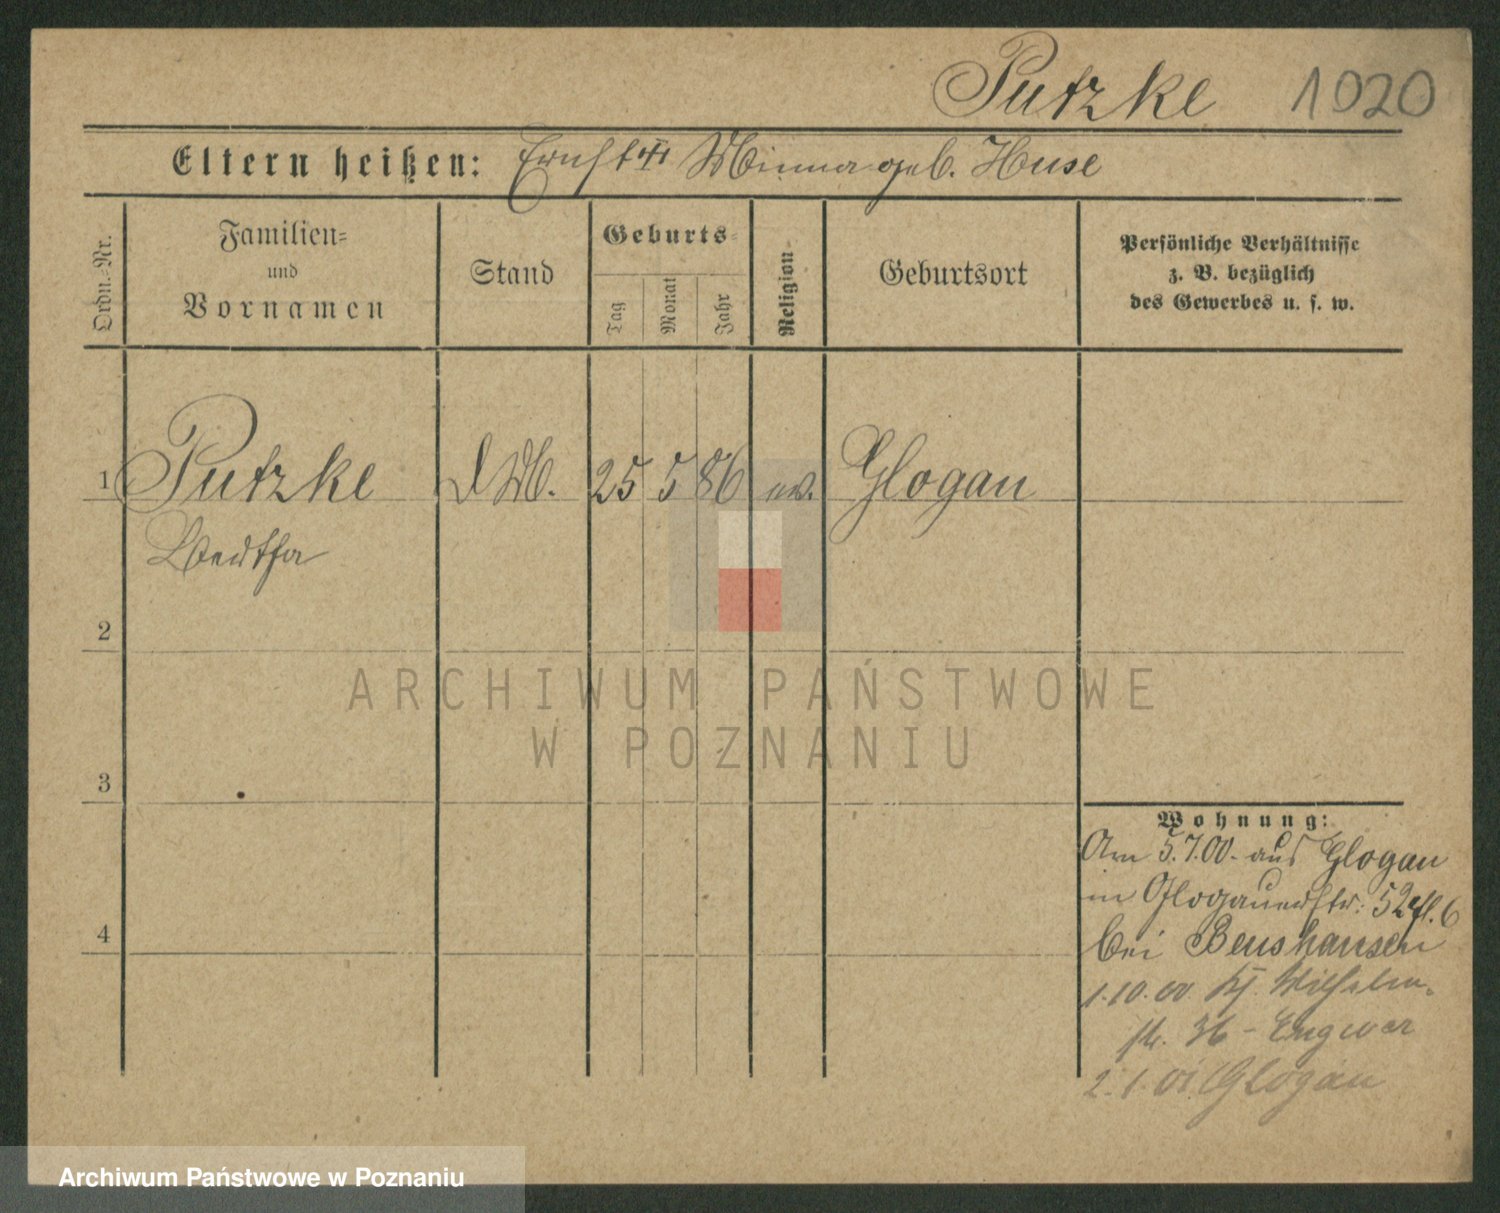 Putzke 1020
Eltern heißen: Ernst Minna geb. Huse
Ordn.-Nr.
Familien-
und
Vornamen
Stand
Geburts-
Tag
Monat
Jahr
Religion
Geburtsort
Persönliche Verhältnisse
z. B. bezüglich
des Gewerbes u. s. w.
1 Putzke d. M. 25 5 86 ev. Glogau
Bertha
2
ARCHIWUM PAŃSTWOWE
W POZNANIU
3
Wohnung:
Am 5.7.00. aus Glogau
in Glogauerstr. 52 6
4
bei Beushausen
1.10.00 Wilhelm-
str. 36 -
2.1.01 Glogau
Archiwum Państwowe w Poznaniu